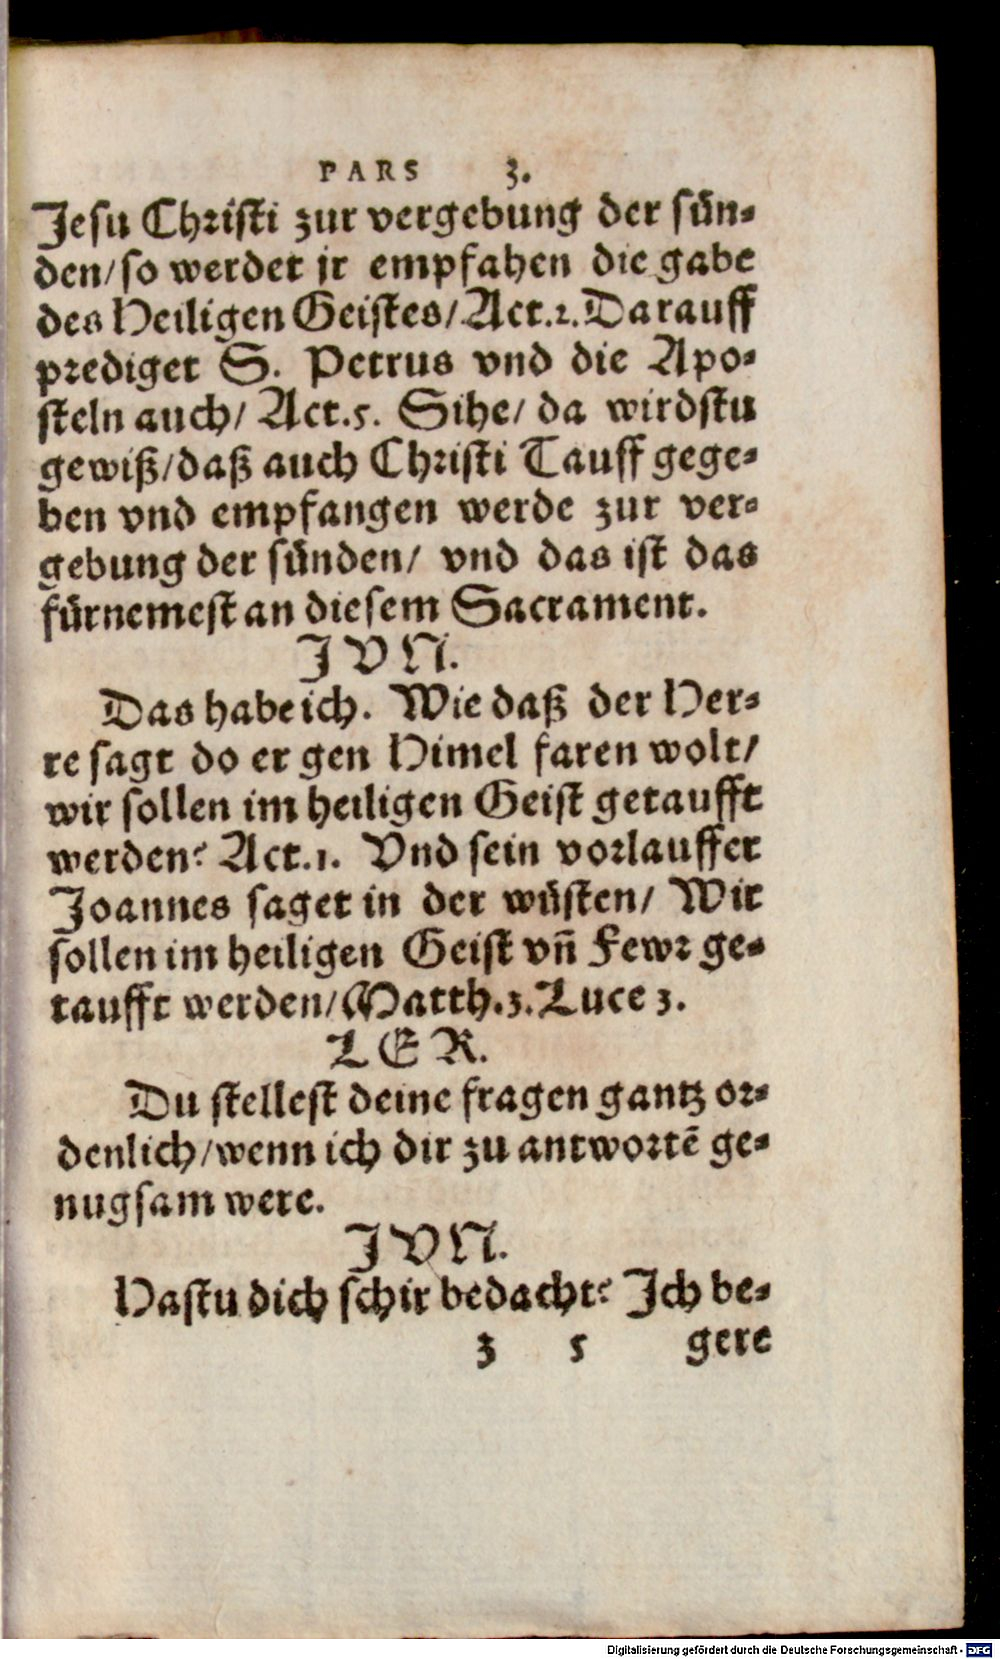 PARS 3.
Jesu Christi zur vergebung der sün-
den/so werdet jr empfahen die gabe
des Heiligen Geistes/Act.2.Darauff
prediget S. Petrus vnd die Apo-
steln auch/ Act.5. Sihe/ da wirdstu
gewiß/daß auch Christi Tauff gege-
ben vnd empfangen werde zur ver-
gebung der sünden/ vnd das ist das
fürnemest an diesem Sacrament.
JVN.
Das habe ich. Wie daß der Her-
re sagt do er gen Himel faren wolt/
wir sollen im heiligen Geist getaufft
werden? Act.1. Vnd sein vorlauffer
Joannes saget in der wüsten/ Wir
sollen im heiligen Geist vñ Fewr ge-
taufft werden/Matth.3.Luce 3.
LER.
Du stellest deine fragen gantz or-
denlich/wenn ich dir zu antwortē ge-
nugsam were.
JVN.
Hastu dich schir bedacht? Ich be-
z 5 gere
Digitalisierung gefördert durch die Deutsche Forschungsgemeinschaft - DFG